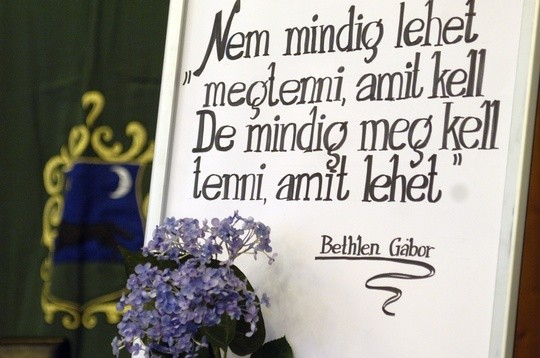 Nem mindig lehet
„megtenni, amit kell
De mindig meg kell
tenni, amit lehet”
Bethlen Gábor